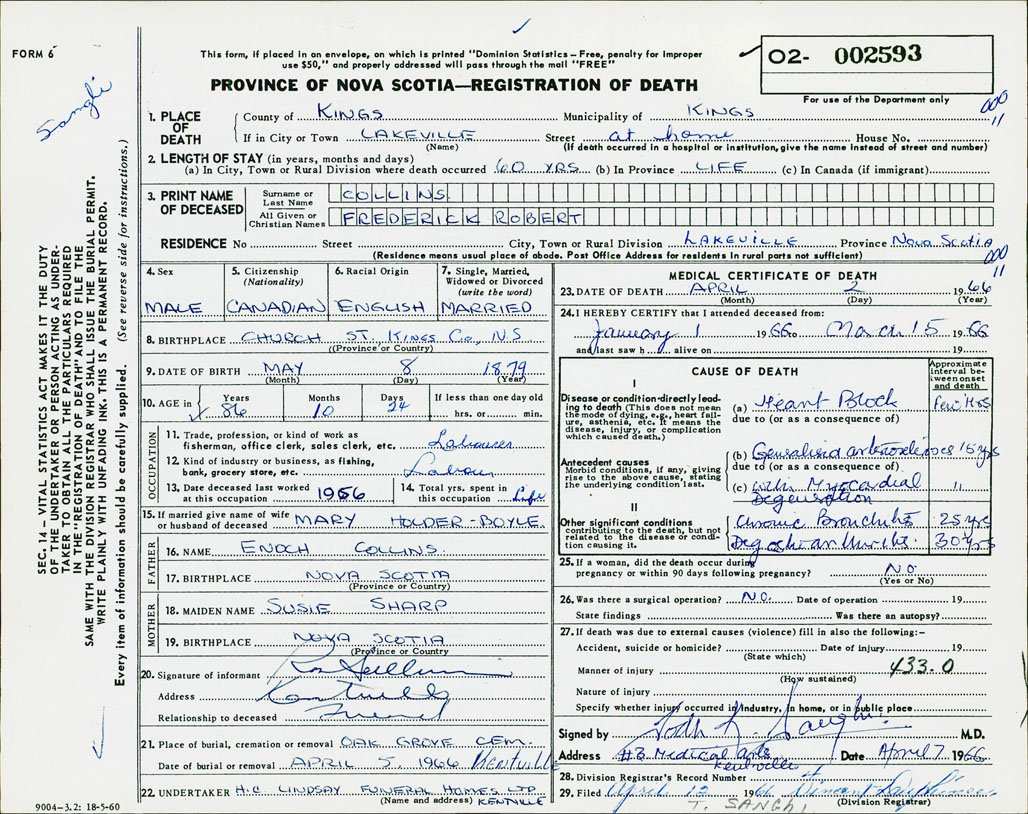 FORM 6
This form, if placed in an envelope, on which is printed "Dominion Statistics – Free, penalty for improper
use $50," and properly addressed will pass through the mail "FREE"
PROVINCE OF NOVA SCOTIA—REGISTRATION OF DEATH
O2- 002593
For use of the Department only
Sanghi
SEC. 14 – VITAL STATISTICS ACT MAKES IT THE DUTY
OF THE UNDERTAKER OR PERSON ACTING AS UNDER-
TAKER TO OBTAIN ALL THE PARTICULARS REQUIRED
IN THE "REGISTRATION OF DEATH" AND TO FILE THE
SAME WITH THE DIVISION REGISTRAR WHO SHALL ISSUE THE BURIAL PERMIT.
WRITE PLAINLY WITH UNFADING INK. THIS IS A PERMANENT RECORD.
Every item of information should be carefully supplied. (See reverse side for instructions.)
1. PLACE OF DEATH
County of KINGS Municipality of KINGS
000
11
If in City or Town LAKEVILLE Street at home House No.
(Name) (If death occurred in a hospital or institution, give the name instead of street and number)
2. LENGTH OF STAY (in years, months and days)
(a) In City, Town or Rural Division where death occurred 60 YRS (b) In Province LIFE (c) In Canada (if immigrant)
3. PRINT NAME OF DECEASED
Surname or Last Name COLLINS
All Given or Christian Names FREDERICK ROBERT
RESIDENCE No Street City, Town or Rural Division LAKEVILLE Province Nova Scotia
(Residence means usual place of abode. Post Office Address for residents in rural parts not sufficient)
000
11
4. Sex
MALE
5. Citizenship (Nationality)
CANADIAN
6. Racial Origin
ENGLISH
7. Single, Married, Widowed or Divorced (write the word)
MARRIED
8. BIRTHPLACE CHURCH ST., KINGS Co., N.S
(Province or Country)
9. DATE OF BIRTH MAY 8 1879
(Month) (Day) (Year)
10. AGE in Years 86 Months 10 Days 24 If less than one day old hrs. or min.
OCCUPATION
11. Trade, profession, or kind of work as
fisherman, office clerk, sales clerk, etc. Labourer
12. Kind of industry or business, as fishing,
bank, grocery store, etc. Labour
13. Date deceased last worked
at this occupation 1956
14. Total yrs. spent in
this occupation Life
15. If married give name of wife
or husband of deceased MARY HOLDER-BOYLE.
FATHER
16. NAME ENOCH COLLINS.
17. BIRTHPLACE NOVA SCOTIA
(Province or Country)
MOTHER
18. MAIDEN NAME SUSIE SHARP
19. BIRTHPLACE NOVA SCOTIA
(Province or Country)
20. Signature of informant
Address Kentville
Relationship to deceased Friend
21. Place of burial, cremation or removal OAK GROVE CEM.
Date of burial or removal APRIL 5 1966 KENTVILLE
22. UNDERTAKER H.C. LINDSAY FUNERAL HOMES LTD
(Name and address) KENTVILLE
9004–3.2: 18-5-60
MEDICAL CERTIFICATE OF DEATH
23. DATE OF DEATH APRIL 2 1966
(Month) (Day) (Year)
24. I HEREBY CERTIFY that I attended deceased from:
January 1 1966 March 15 1966
and last saw h alive on 19
CAUSE OF DEATH
Approximate interval between onset and death
I
Disease or condition directly leading to death (This does not mean the mode of dying, e.g., heart failure, asthenia, etc. It means the disease, injury, or complication which caused death.)
(a) Heart Block Few Hrs
due to (or as a consequence of)
Antecedent causes
Morbid conditions, if any, giving rise to the above cause, stating the underlying condition last.
(b) Generalised arteriosclerosis 15 yrs
due to (or as a consequence of)
(c) with Myocardial Degeneration 11
II
Other significant conditions contributing to the death, but not related to the disease or condition causing it.
Chronic Bronchitis 25 yrs
Deg osteoarthritis. 30 yrs
25. If a woman, did the death occur during
pregnancy or within 90 days following pregnancy? NO.
(Yes or No)
26. Was there a surgical operation? NO. Date of operation 19
State findings Was there an autopsy?
27. If death was due to external causes (violence) fill in also the following:–
Accident, suicide or homicide? Date of injury 19
(State which)
Manner of injury 433.0
(How sustained)
Nature of injury
Specify whether injury occurred in industry, in home, or in public place
Signed by Sanghi M.D.
Address #3 Medical Arts Kentville Date April 7 1966
28. Division Registrar's Record Number
29. Filed April 12 1966 Vincent
(Division Registrar)
T. SANGHI